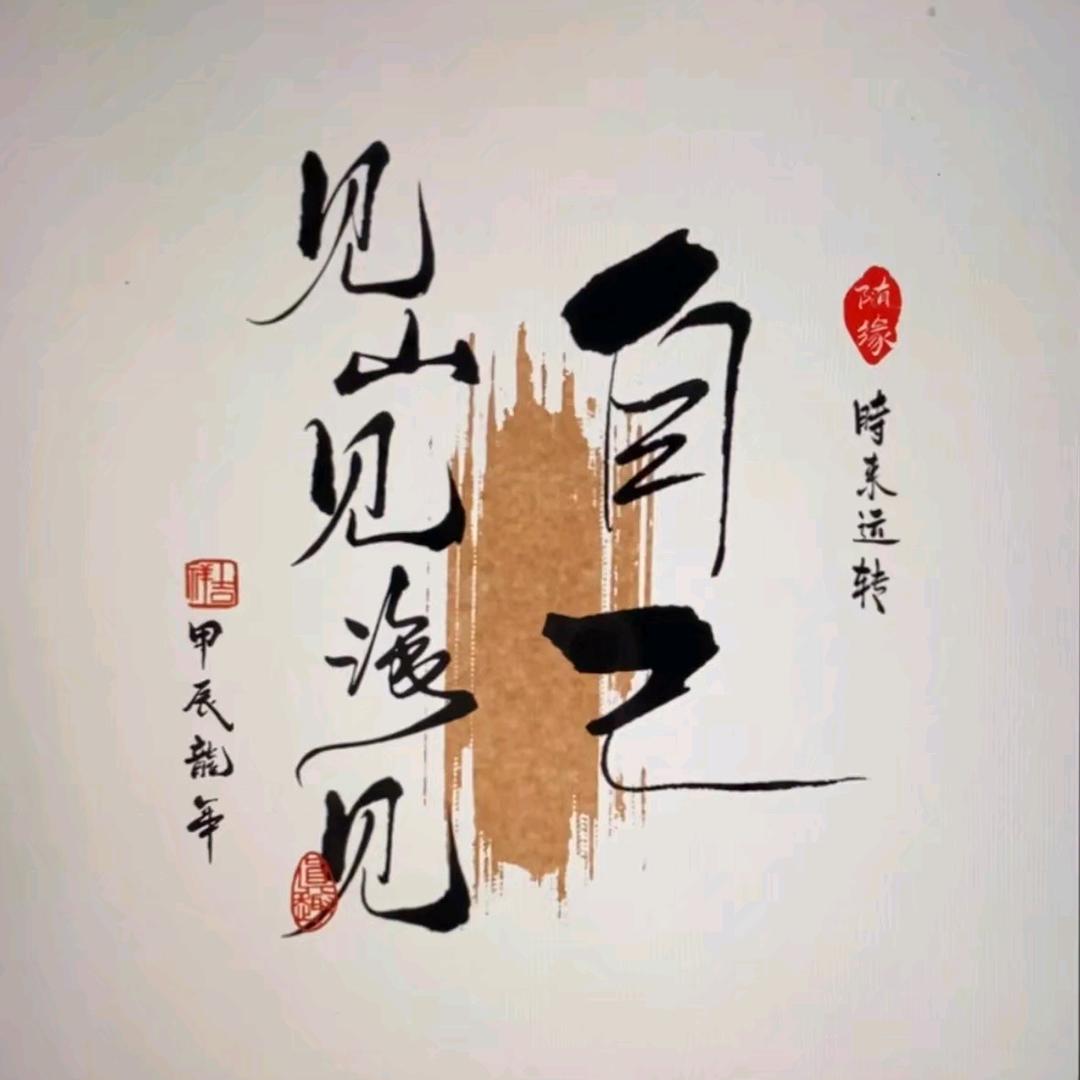 随缘
時来运转
自己
见山见海见
吉祥
甲辰龍年
真趣